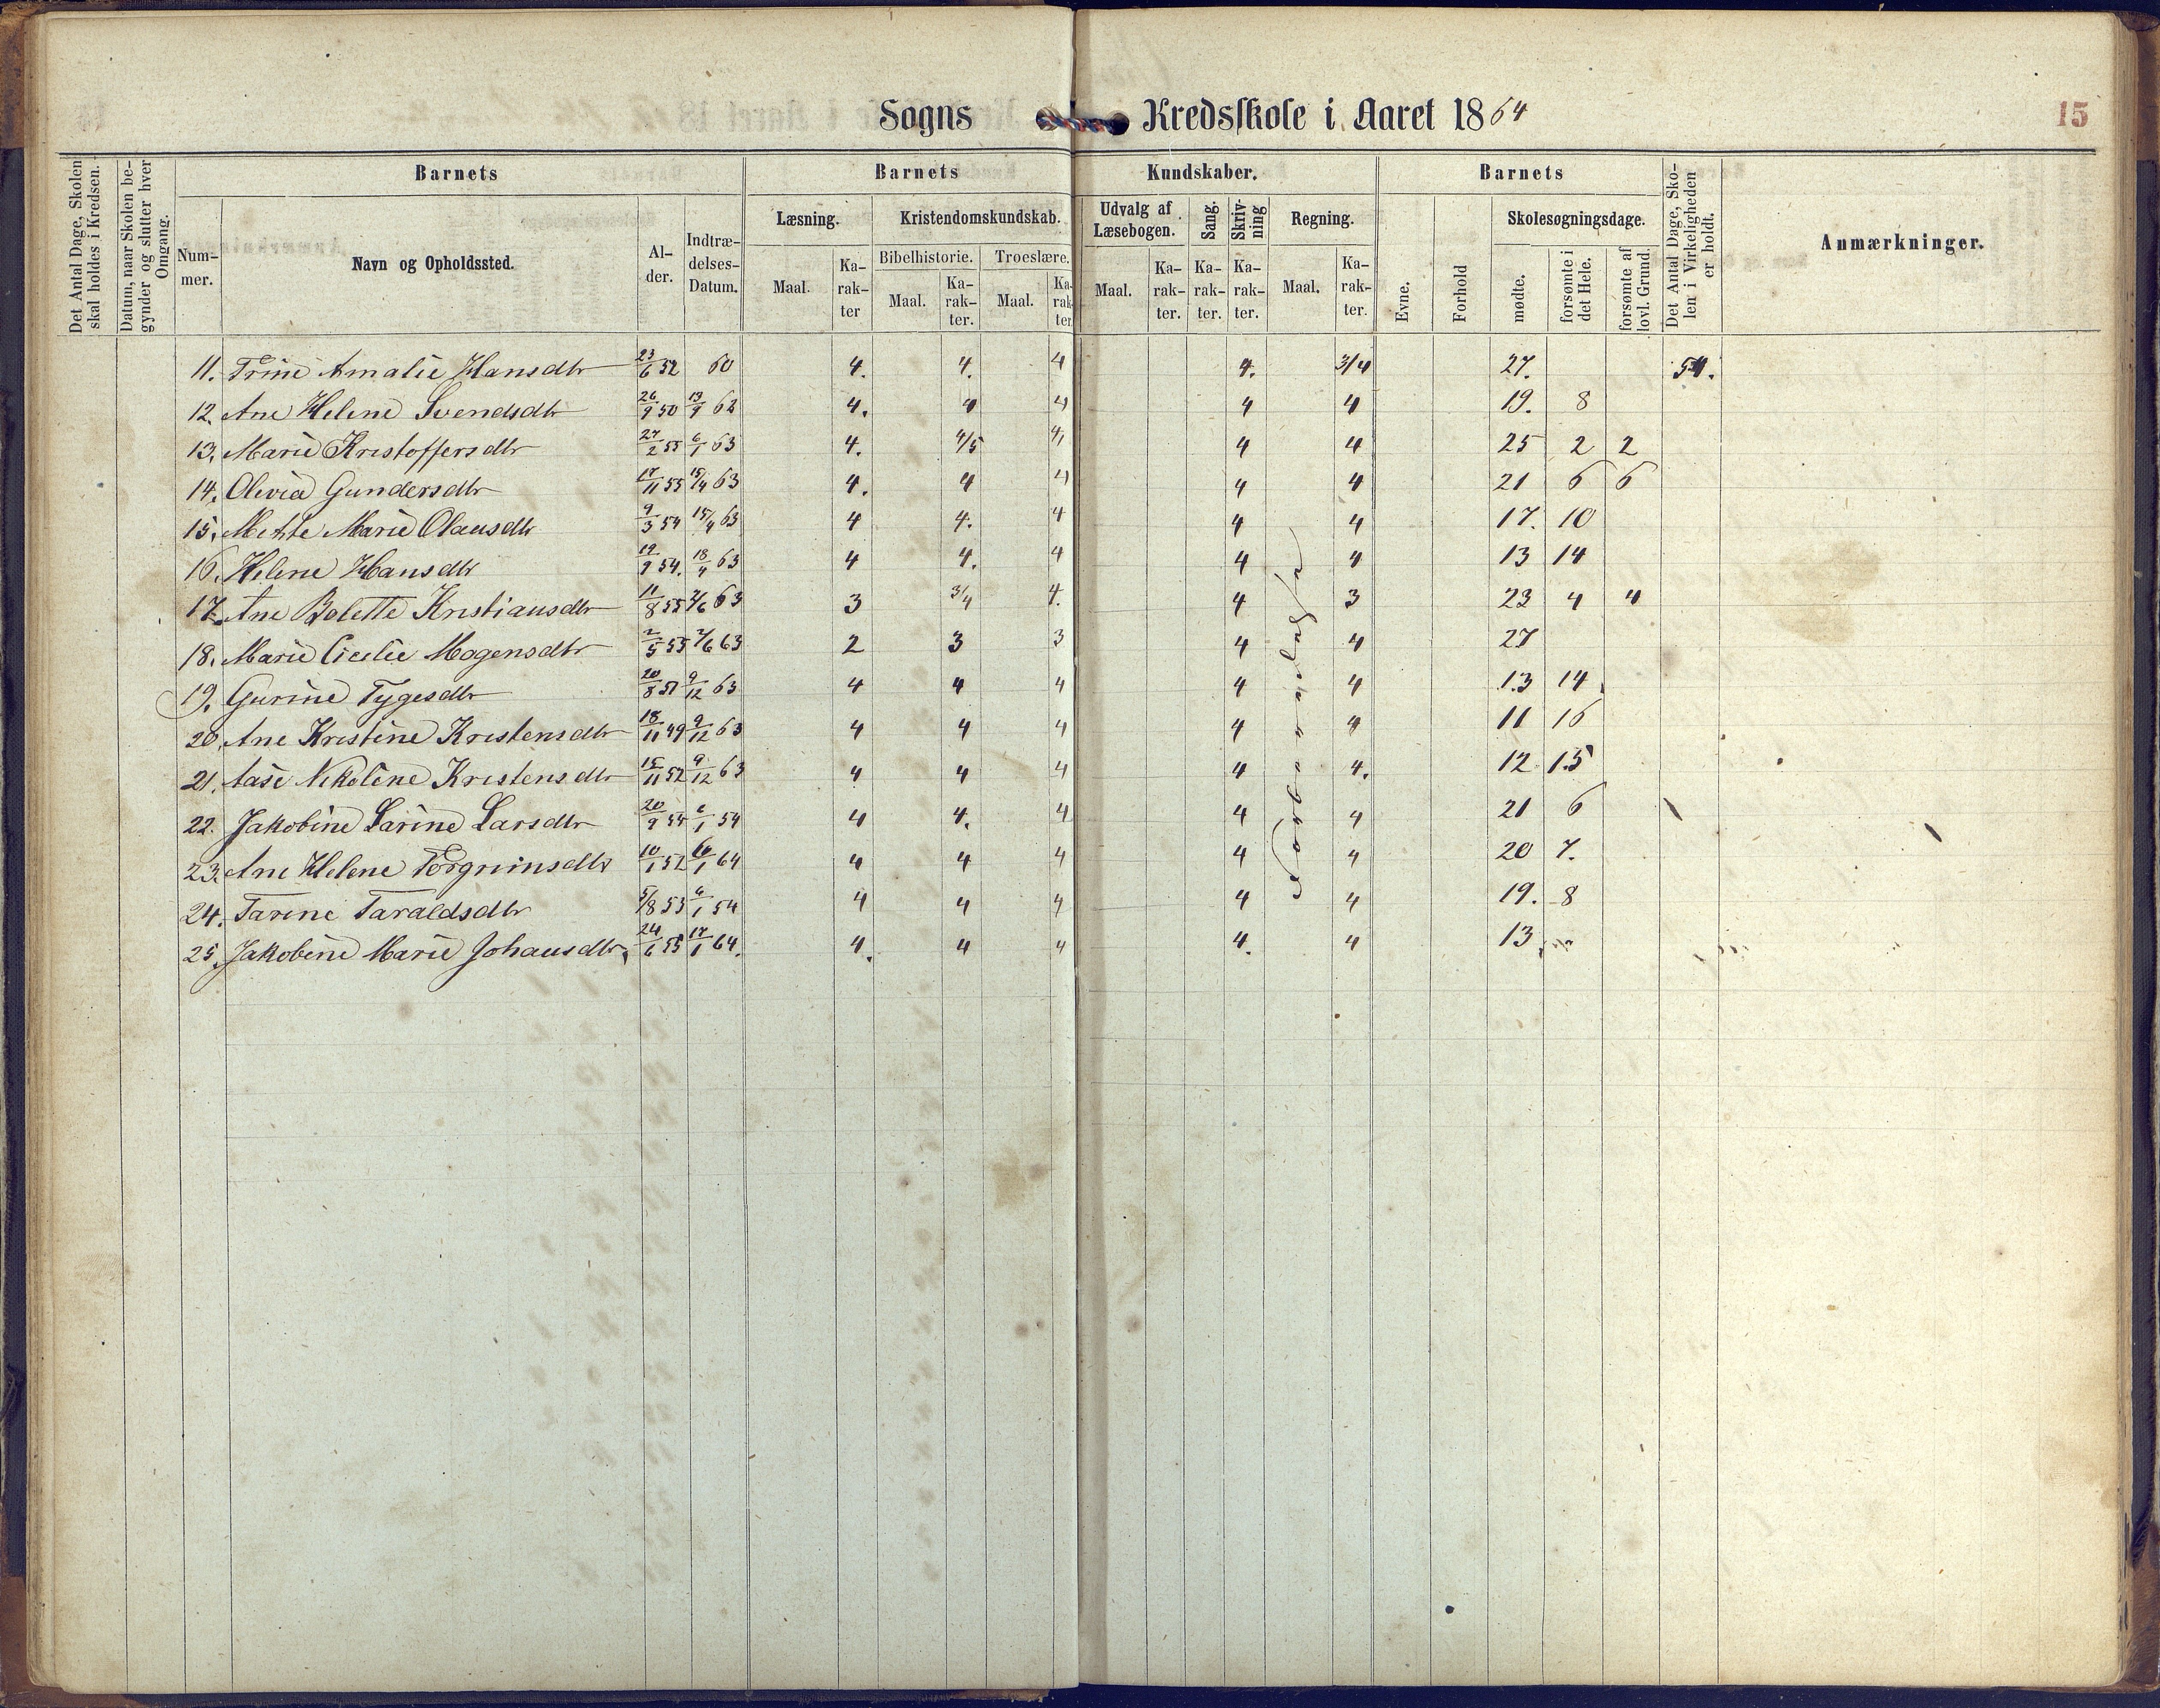 Sogns Kredsskole i Aaret 1864
15
Det Antal Dage, Skolen skal holdes i Kredsen.
Datum, naar Skolen begynder og slutter hver Omgang.
Barnets
Nummer.
Navn og Opholdssted.
Alder.
Indtrædelses-Datum.
Barnets Kundskaber.
Læsning.
Maal.
Karakter
Kristendomskundskab.
Bibelhistorie.
Maal.
Karakter.
Troeslære.
Maal.
Karakter
Udvalg af Læsebogen.
Maal.
Karakter.
Sang.
Karakter.
Skrivning
Karakter.
Regning.
Maal.
Karakter.
Barnets
Evne.
Forhold
Skolesøgningsdage.
mødte.
forsømte i det Hele.
forsømte af lovl. Grund.
Det Antal Dage, Skolen i Virkeligheden er holdt.
Anmærkninger.
11. Trine Amalie Hansdtr 23/6 52 60 4. 4. 4 4. 3/4 27. 54.
12. Ane Helene Svendsdtr 26/9 50 13/9 62 4. 4 4 4 4 19. 8
13. Marie Kristoffersdtr 27/2 55 6/1 63 4. 4/5 4 4 4 25 2 2
14. Olivia Gundersdtr 17/11 55 15/4 63 4. 4 4 4 4 21 6 6
15. Mette Marie Olausdtr 9/3 54 15/4 63 4 4. 4 4 4 17. 10
16. Helene Hansdtr 19/9 54. 18/4 63 4 4. 4 4 4 13 14
17. Ane Bolette Kristiansdtr 11/8 55 2/6 63 3 3/4 4. 4 3 23 4 4
18. Marie Cicilie Mogensdtr 2/5 55 2/6 63 2 3 3 4 4 27
19. Gurine Tygesdtr 20/8 51 9/12 63 4 4 4 4 4 13 14
20. Ane Kristine Kristensdtr 18/11 49 9/12 63 4 4 4 4 4 11 16
21. Aase Nikoline Kristensdtr 15/11 52 9/12 63 4 4 4 4 4. 12 15
22. Jakobine Larine Larsdtr 20/9 54 6/1 54 4 4. 4 4 4 21 6
23. Ane Helene Torgrimsdtr 10/1 52 6/1 64 4 4 4 4 4 20 7.
24. Tarine Taraldsdtr 5/8 53 6/1 54 4 4 4 4 4 19. 8
25. Jakobine Marie Johansdtr 24/6 55 17/1 64. 4. 4 4 4. 4 13